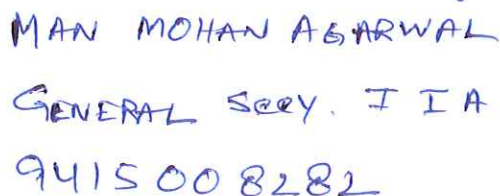 MAN MOHAN AGARWAL
GENERAL Secy. I I A
9415008282